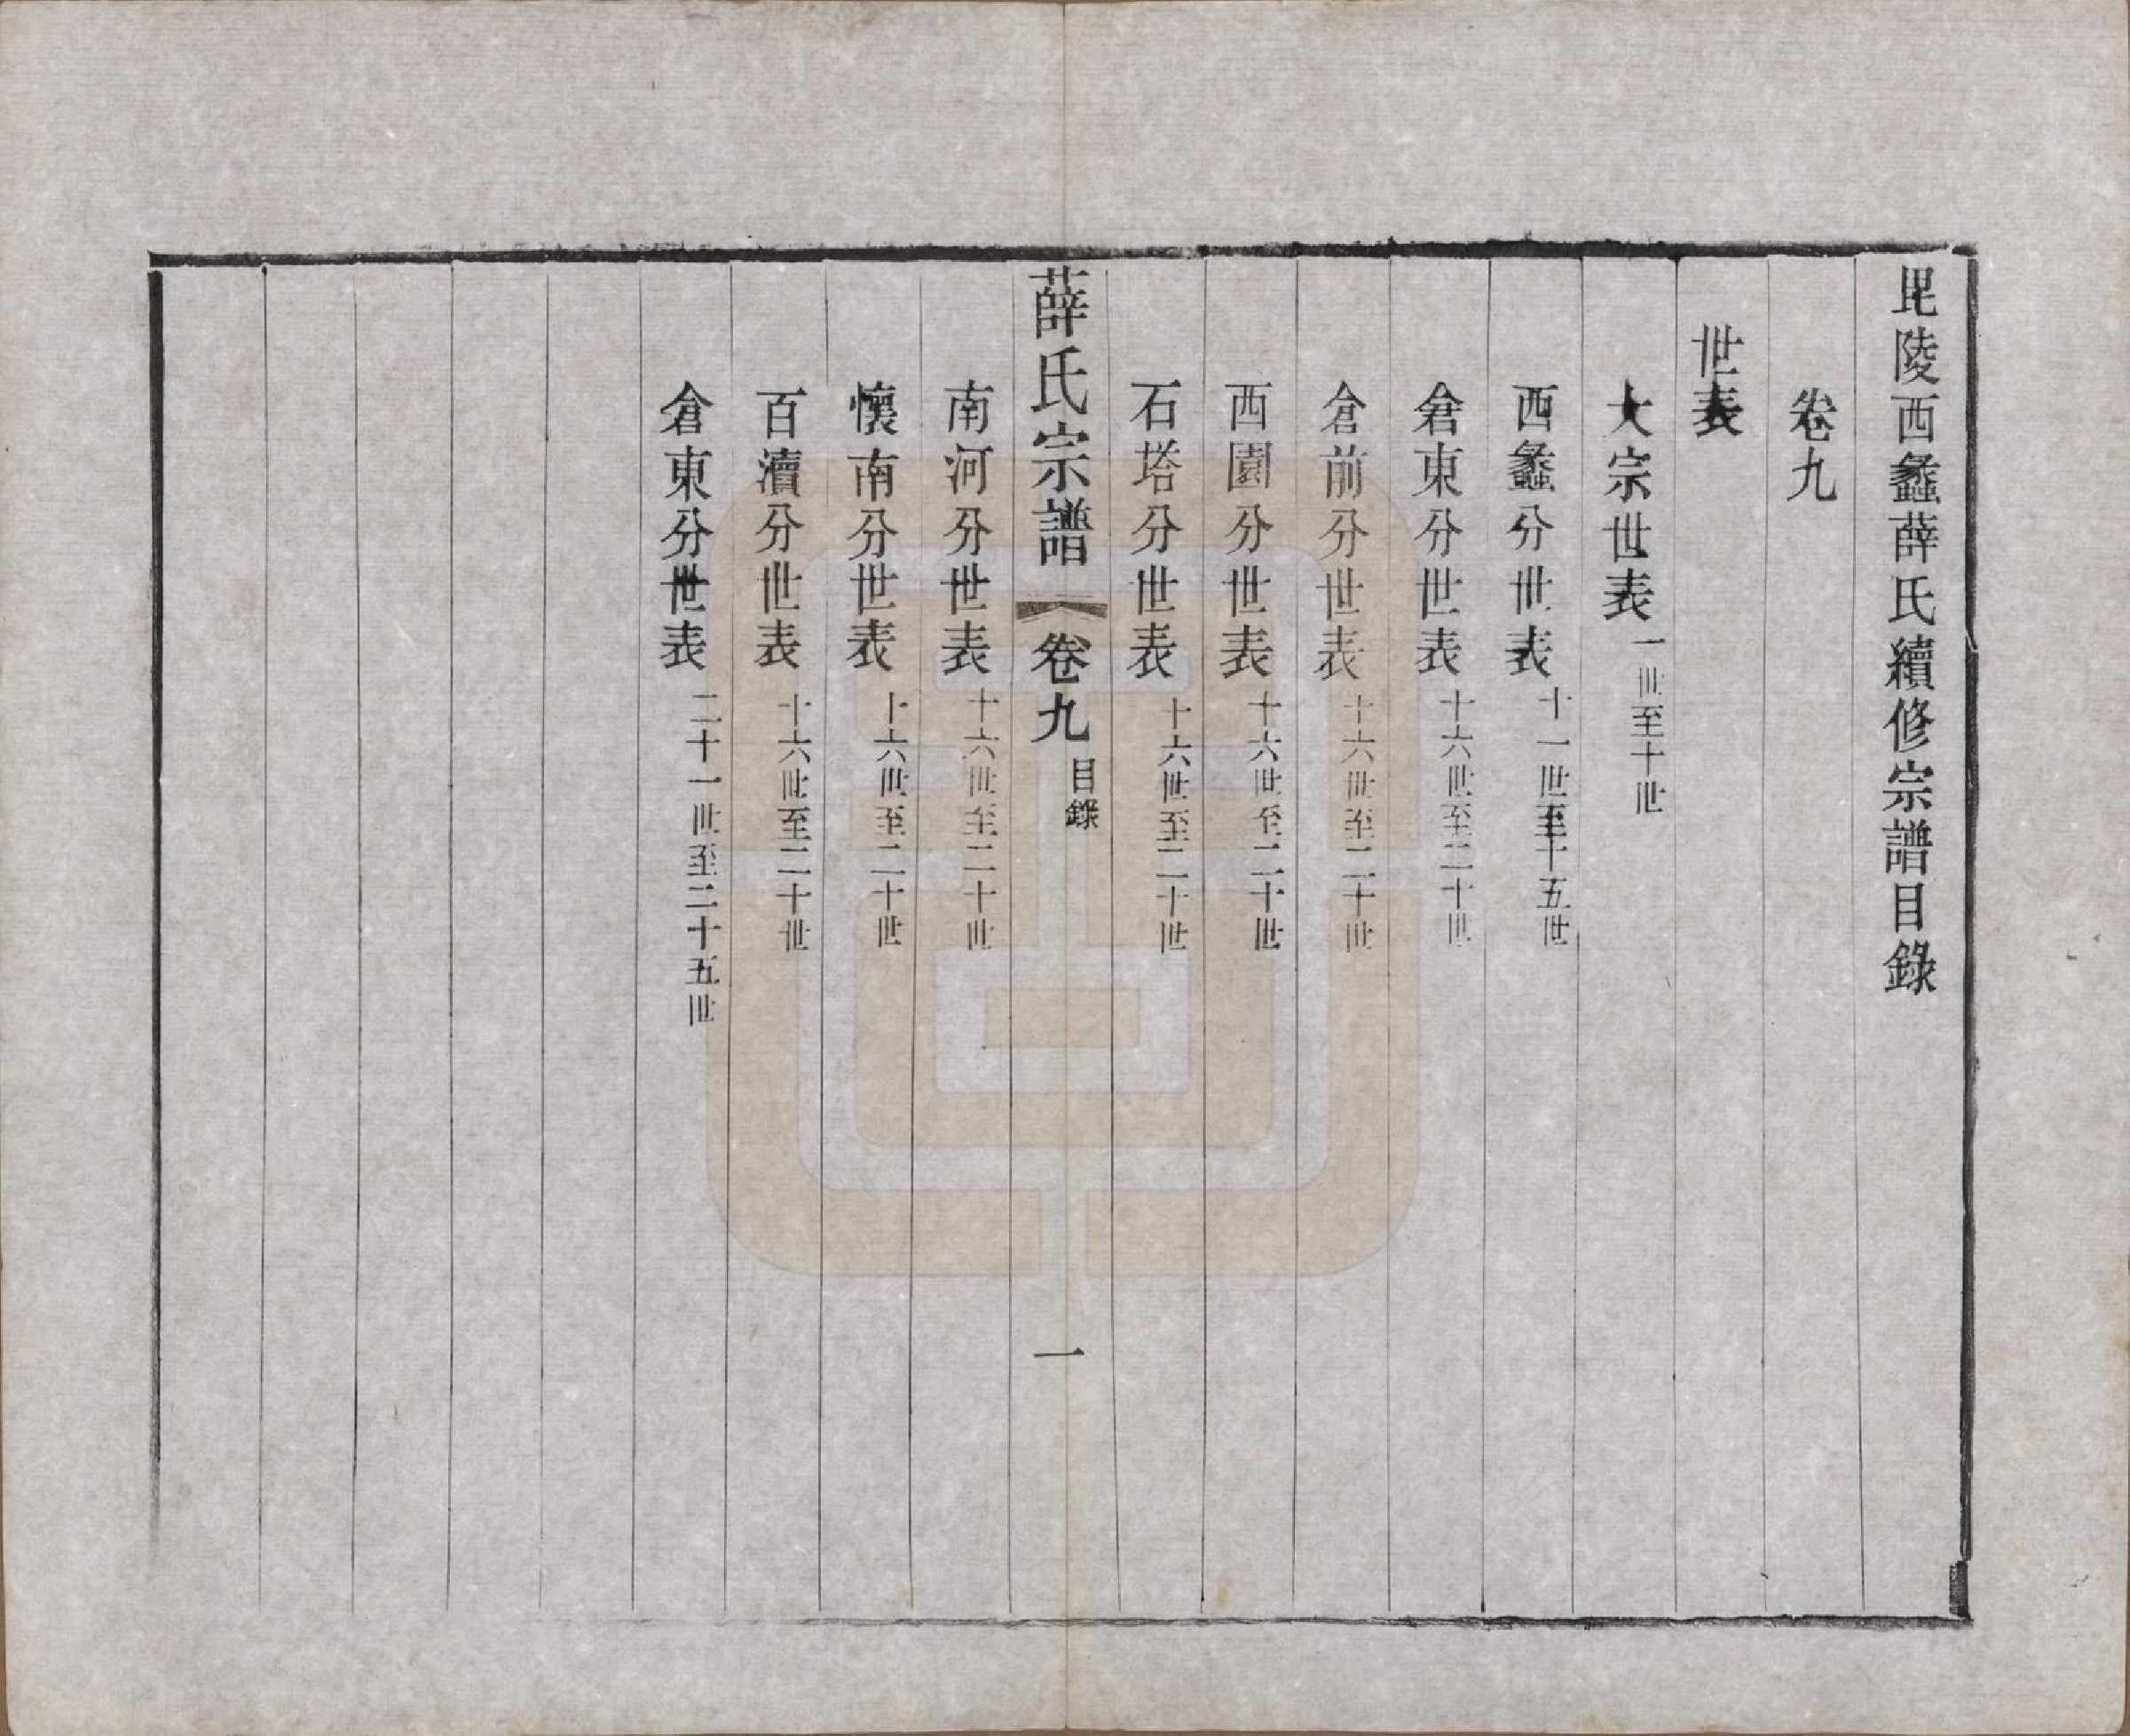 毘陵西蠡薛氏續修宗譜目錄
卷九
世表
大宗世表一世至十世
西蠡分世表十一世至十五世
倉東分世表十六世至二十世
倉前分世表十六世至二十世
西園分世表十六世至二十世
石塔分世表十六世至二十世
薛氏宗譜 卷九 目錄 一
南河分世表十六世至二十世
懷南分世表十六世至二十世
百瀆分世表十六世至二十世
倉東分世表二十一世至二十五世